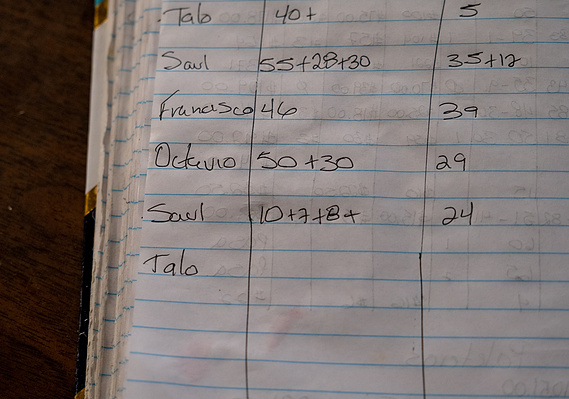 Talo 40+ 5
Saul 55+28+30 35+17
Francisco 46 39
Octavio 50+30 29
Saul 10+7+8+ 24
Talo